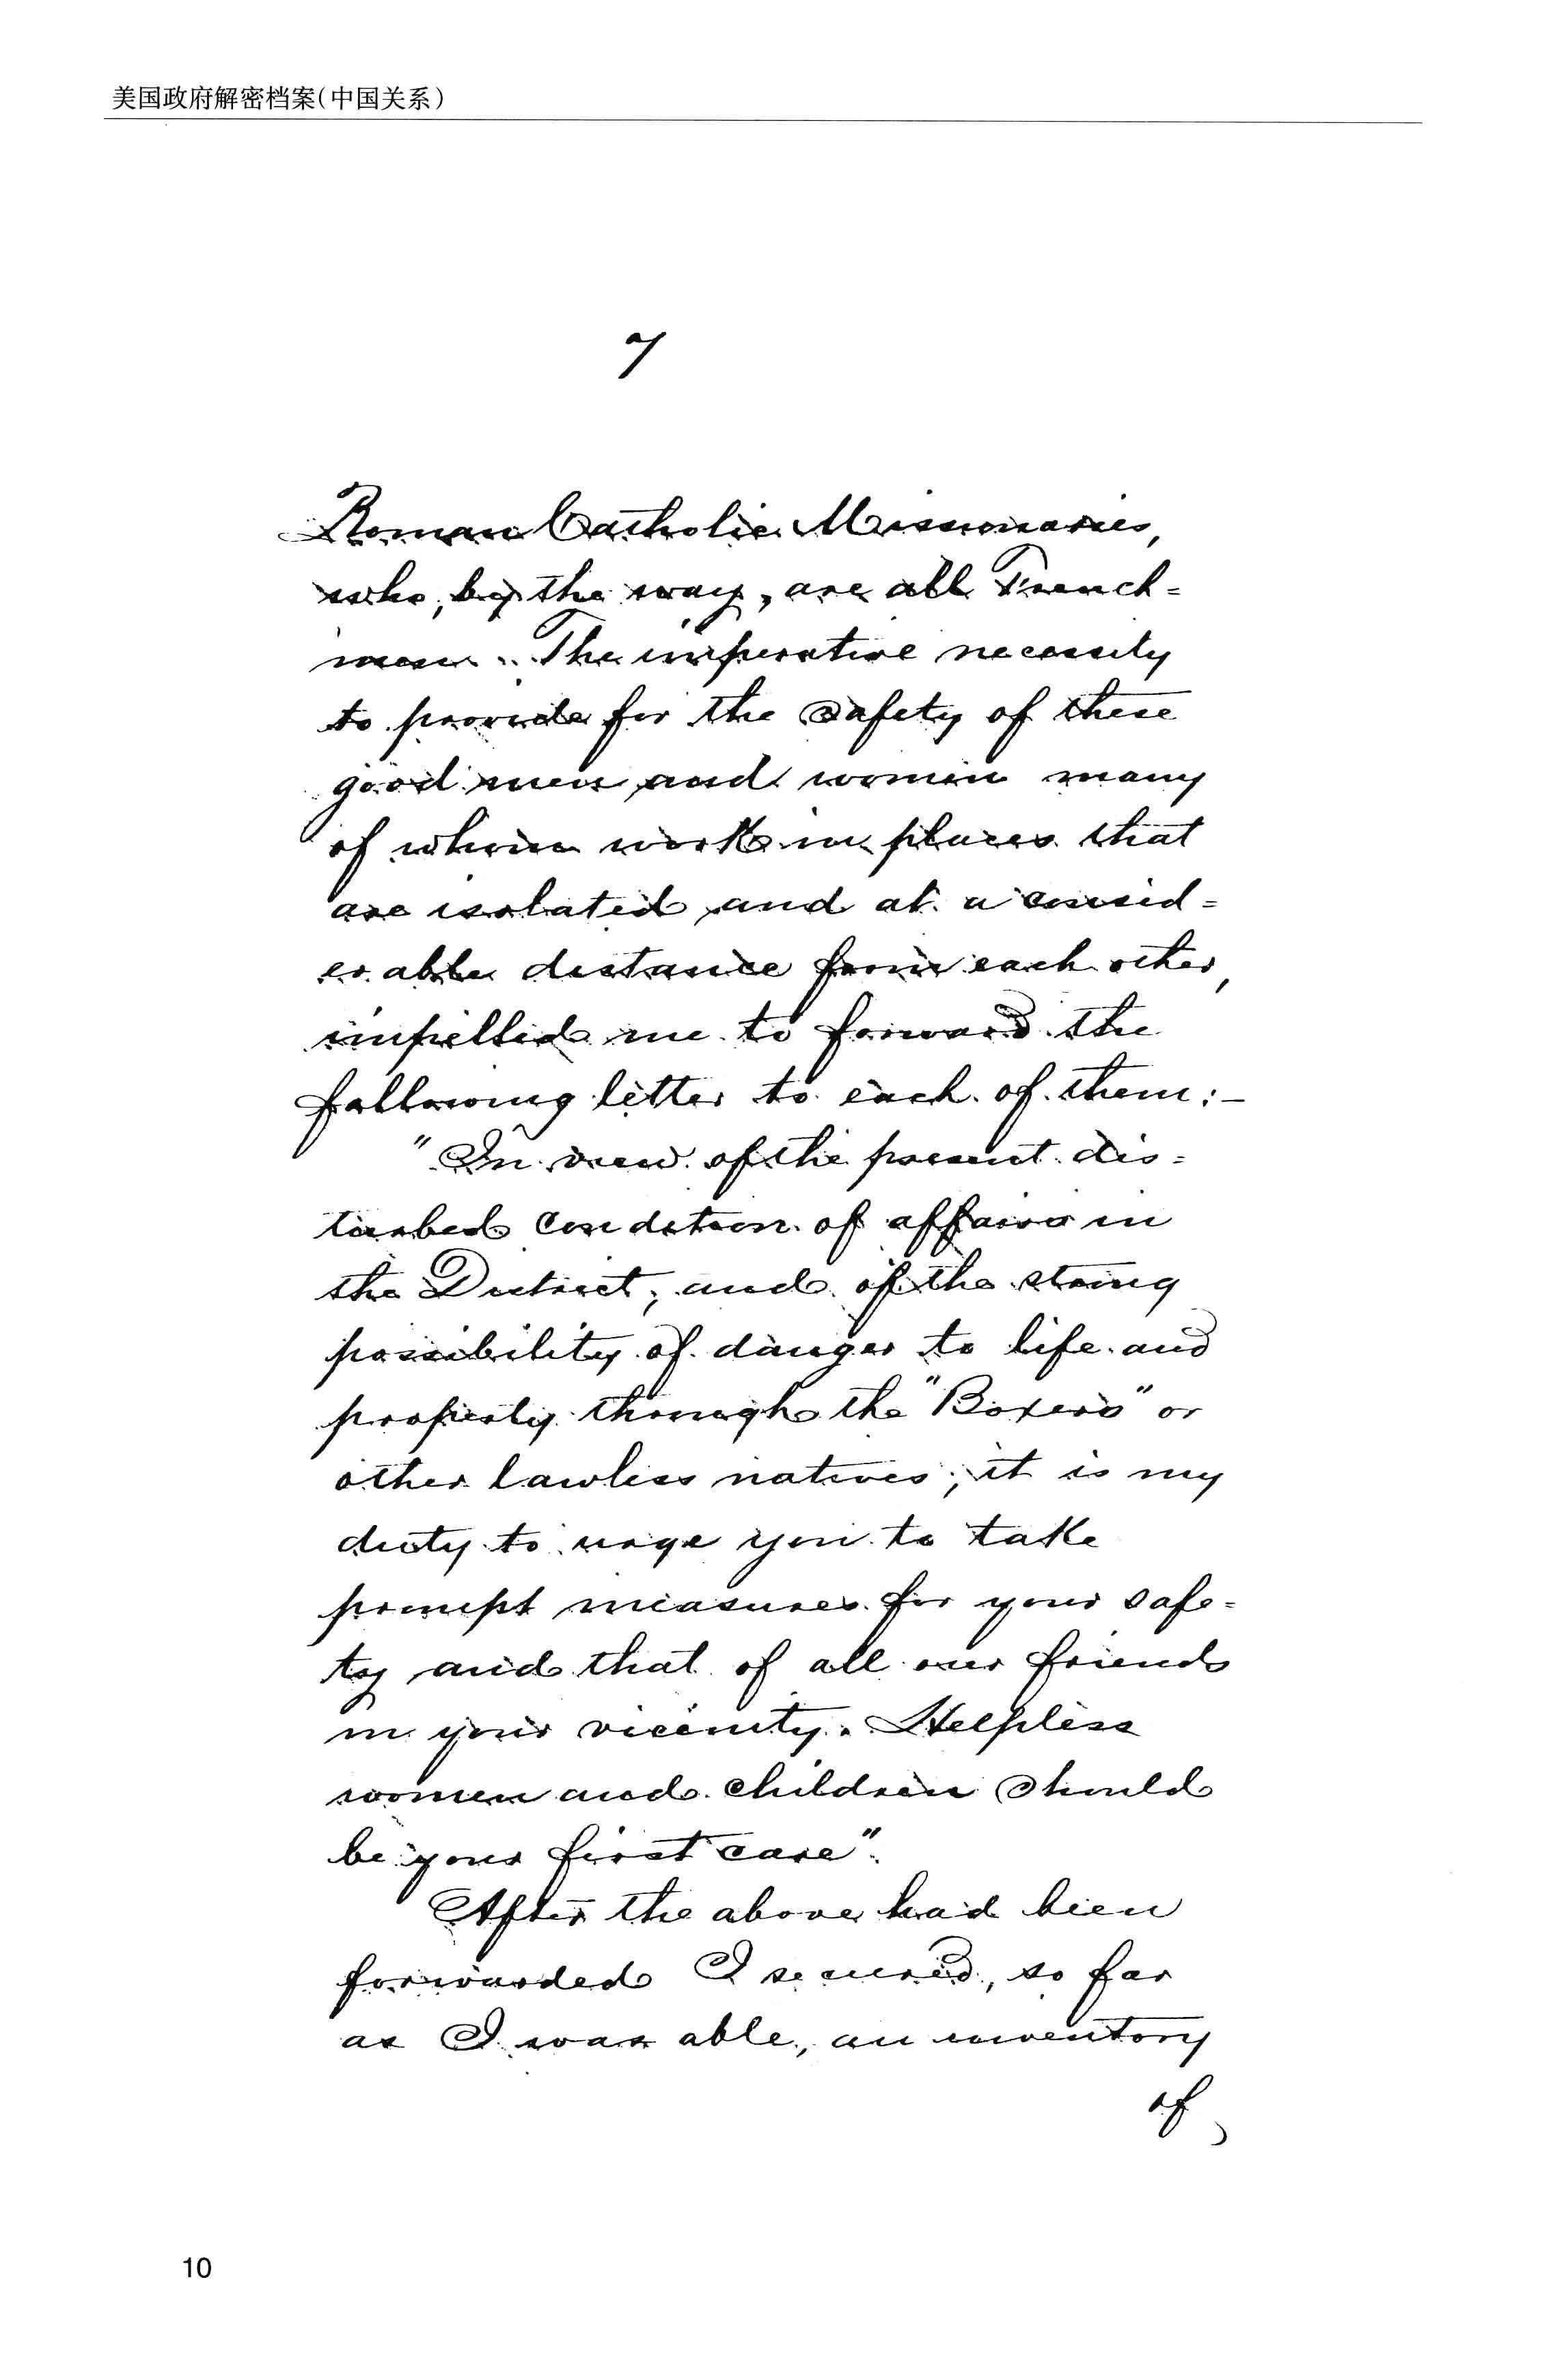 美国政府解密档案(中国关系)
7
Roman Catholic Missionaries,
who, by the way, are all French=
men. The imperative necessity
to provide for the safety of these
good men and women many
of whom work in places that
are isolated and at a consid=
erable distance from each other,
impelled me to forward the
following letter to each of them:-
"In view of the present dis=
turbed condition of affairs in
the District, and of the strong
possibility of danger to life and
property through the "Boxers" or
other lawless natives, it is my
duty to urge you to take
prompt measures for your safe=
ty and that of all our friends
in your vicinity. Helpless
women and children should
be your first care".
After the above had been
forwarded I secured, so far
as I was able, an inventory
of
10